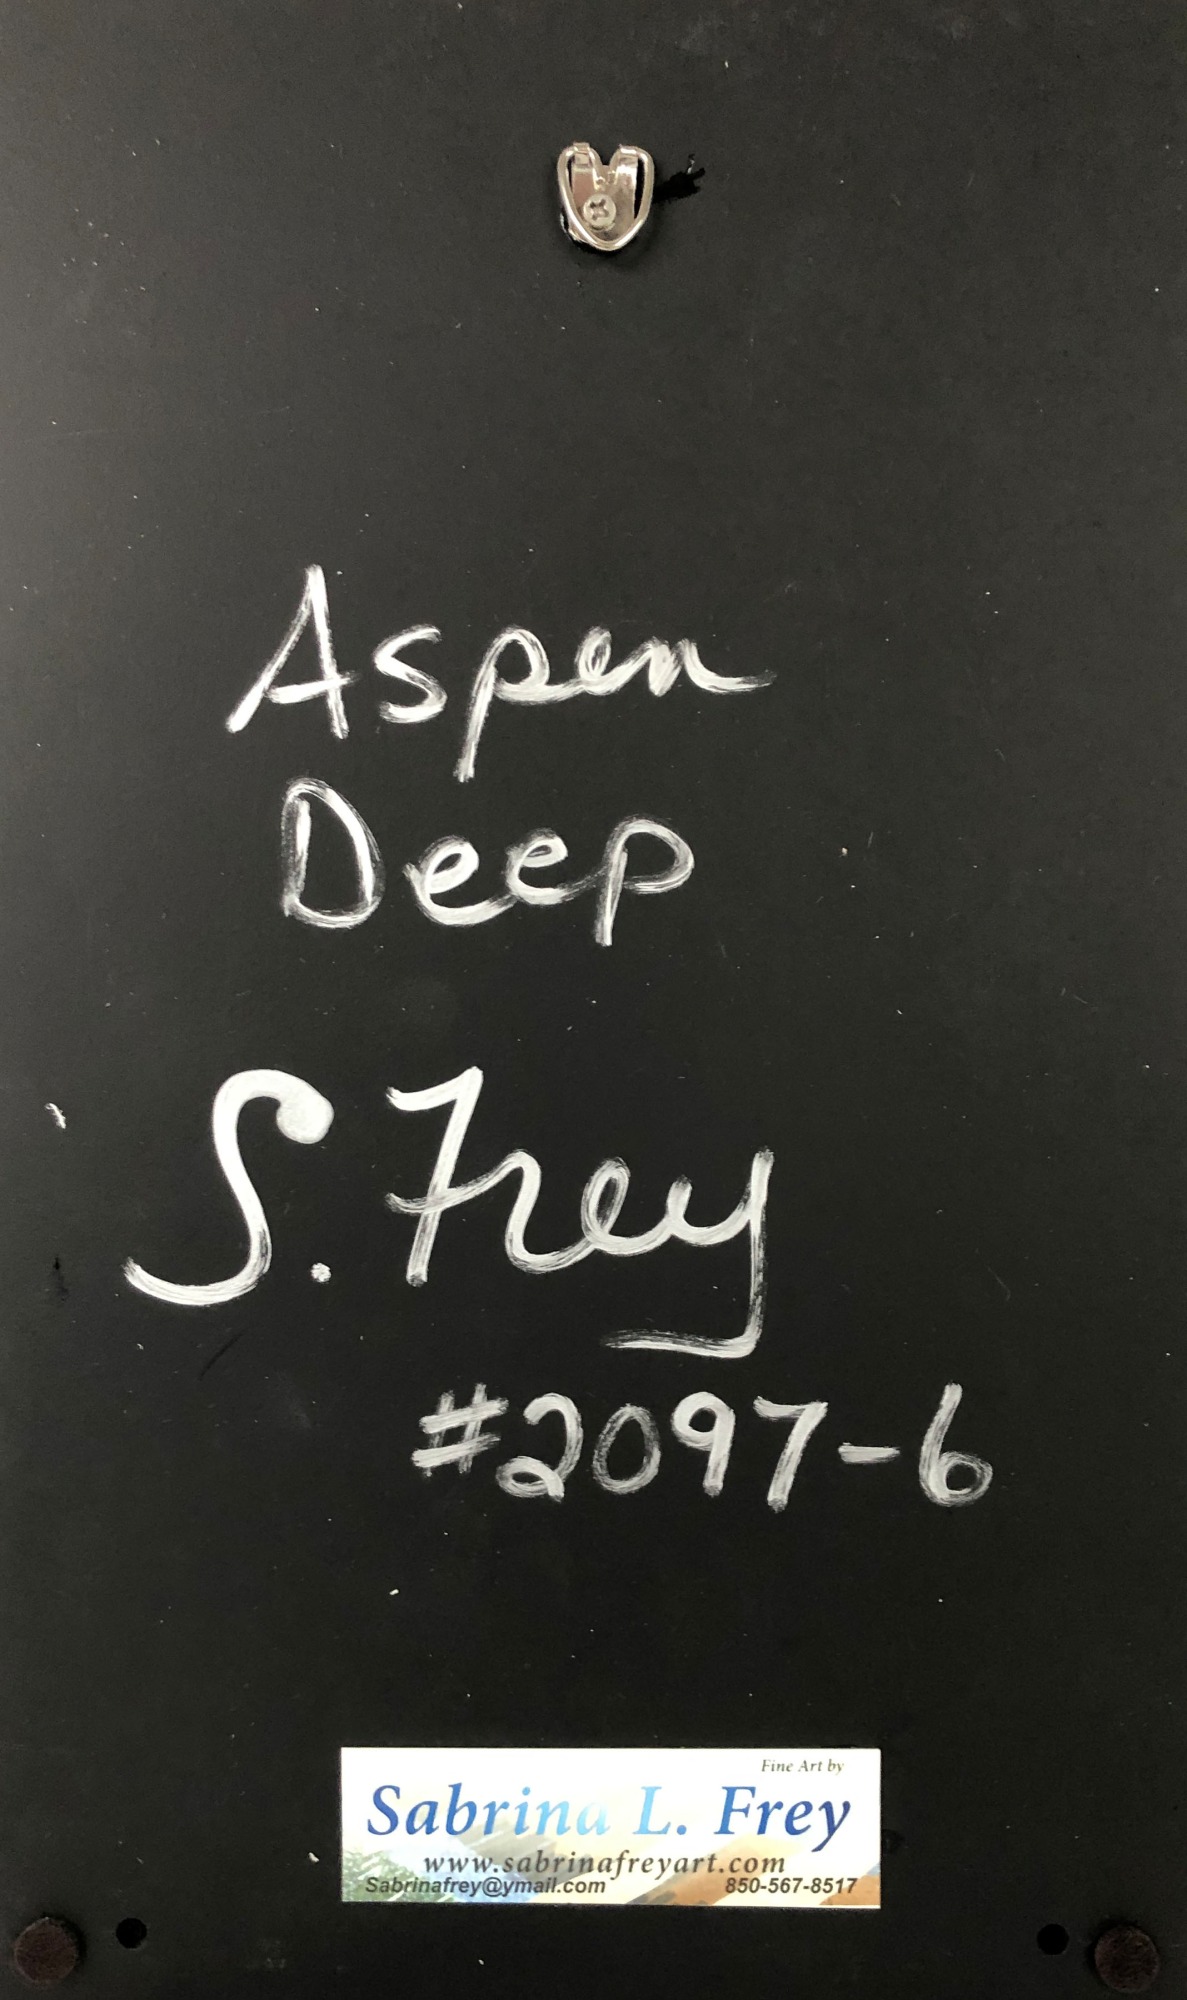 Aspen
Deep
S. Frey
#2097-6
Fine Art by
Sabrina L. Frey
www.sabrinafreyart.com
Sabrinafrey@ymail.com 850-567-8517